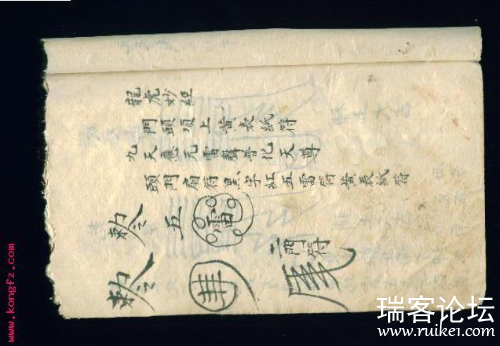 龍虎妙經
門頭頂上黃表紙符
九天應元雷聲普化天尊
頭門扇符黑字紅五雷符黃表紙符
勅令 五 雷
勅令
瑞客论坛
www.ruike1.com
www.kongfz.com